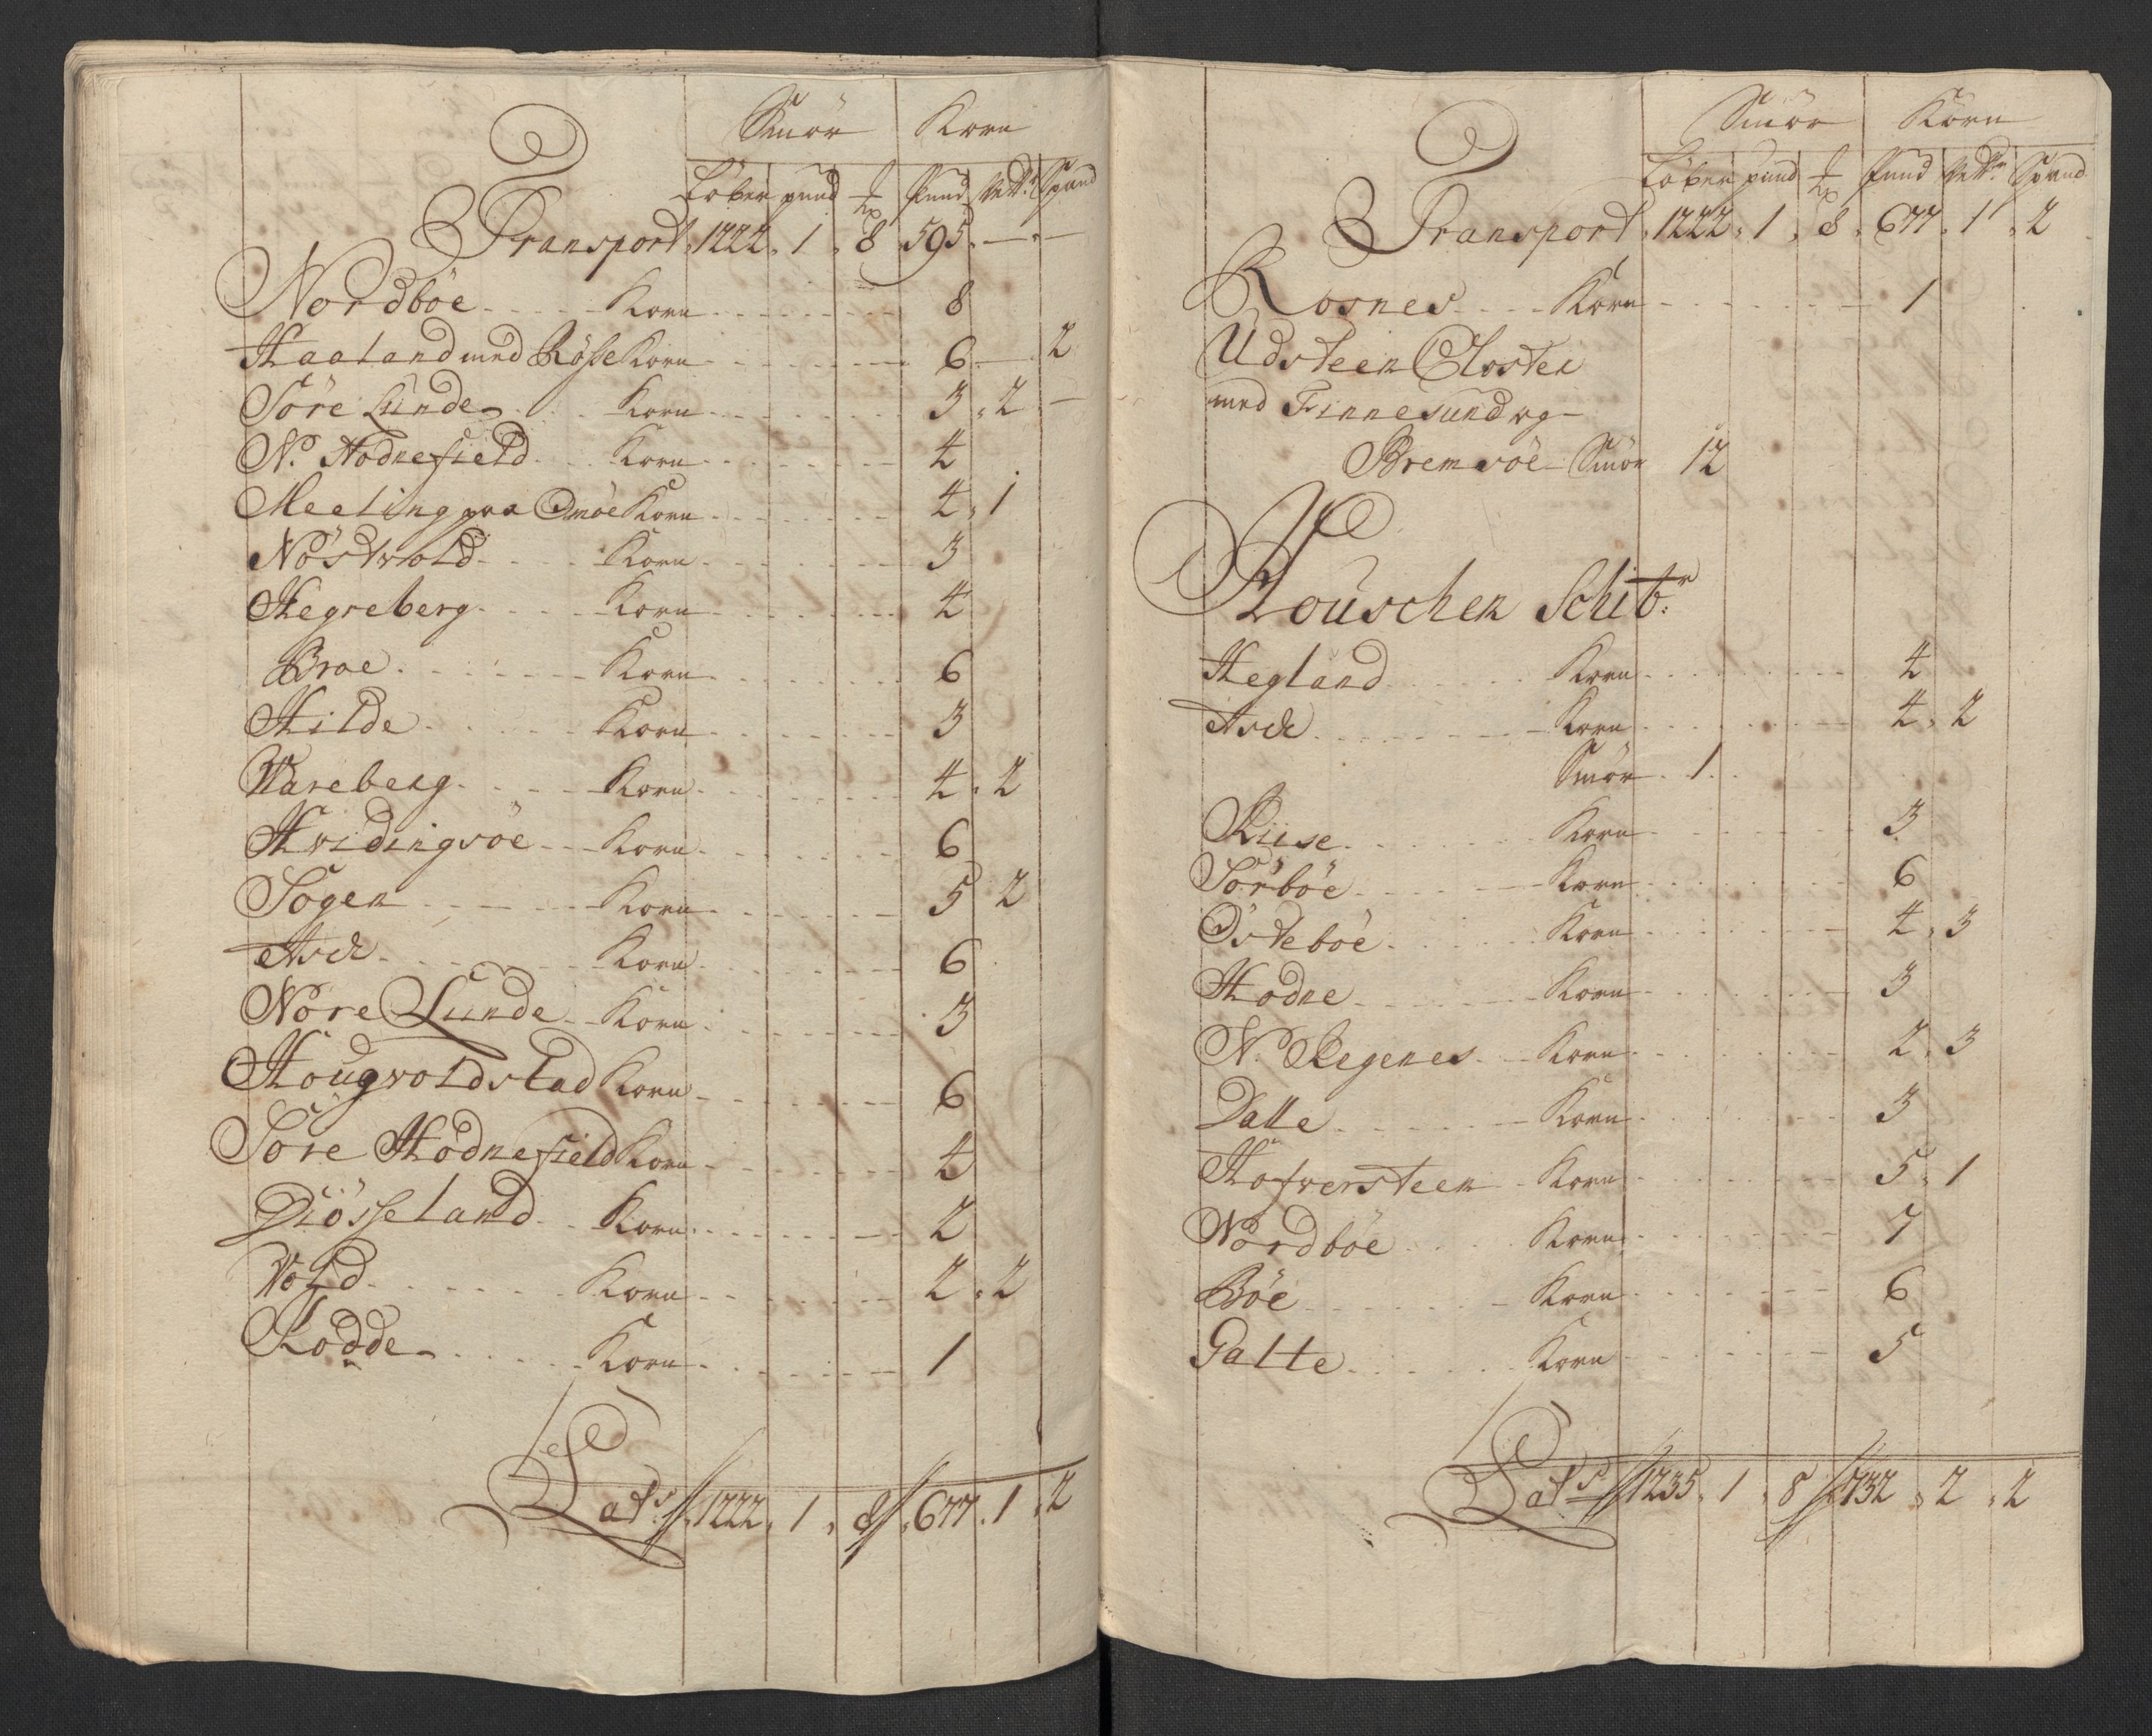 Smör Korn
Löber pund ℔ Pund Vett: Spand
Transport. 1222. 1. 8. 595. — . —
Nordböe Korn 8
Haaland med Rösse Korn 6 — 2
Söre Lunde Korn 3. 2. —
N. Hodnefield Korn 4
Meeling paa Omöe Korn 4. 1
Nöstvold Korn 3
Hegreberg Korn 4
Broe Korn 6
Hilde Korn 3
Wareberg Korn 4. 2
Hvidingsöe Korn 6
Sogen Korn 5 2
Ask Korn 6
Nore Lunde Korn 3
Hougvoldstad Korn 6
Söre Hodnefield Korn 4
Diösseland Korn 2
Vold Korn 2. 2
Lodde Korn 1
Lats 1222. 1. 8 677. 1. 2
Smör Korn
Löber pund ℔ Pund Vett: Spand
Transport. 1222. 1. 8. 677. 1. 2
Rosnes Korn 1
Udsteen Closter
med Finnesund og
Bremsöe Smör 12
Houschen Schibr:
Hegland Korn 4
Ask Korn 4. 2
Smör. 1.
Riise Korn 3
Sörböe Korn 6
Østeböe Korn 4. 3
Hodne Korn 3
N. Regenes Korn 2. 3
Dalle Korn 3
Hofversteen Korn 5. 1
Nordböe Korn 7
Böe Korn 6
Galte Korn 5
Lats 1235. 1. 8 732. 2. 2